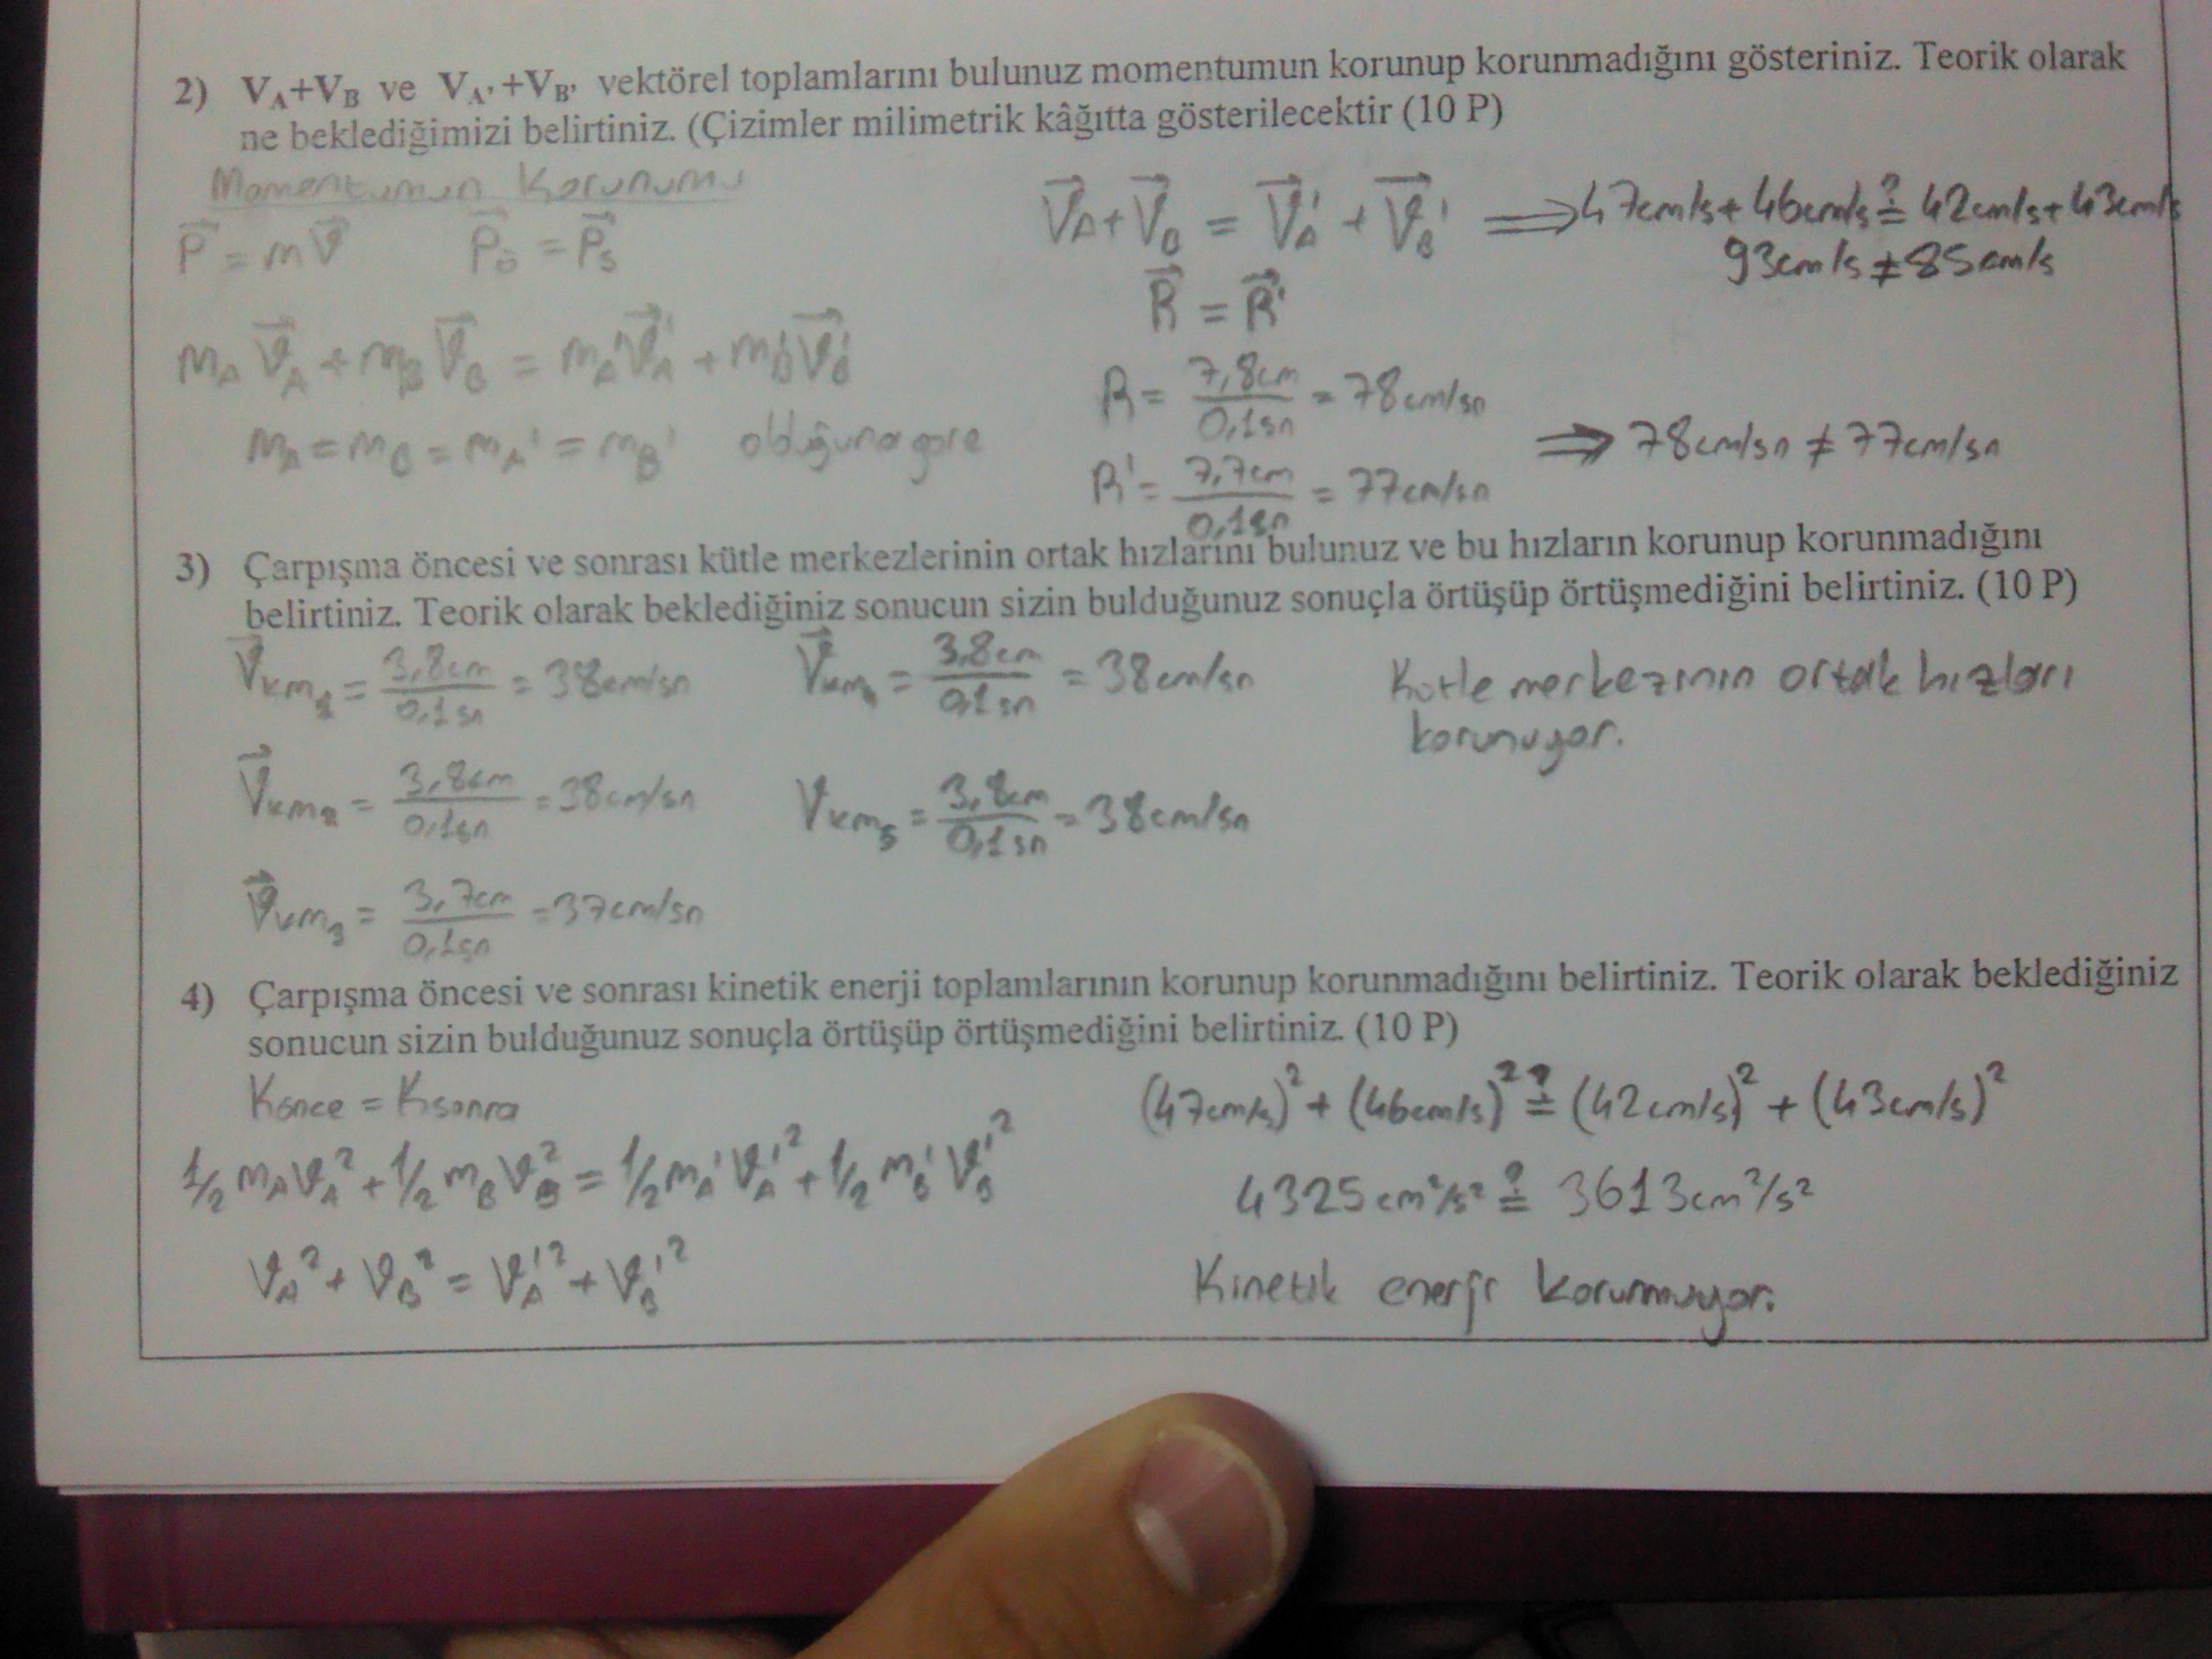 2) VA+VB ve VA'+VB' vektörel toplamlarını bulunuz momentumun korunup korunmadığını gösteriniz. Teorik olarak
ne beklediğimizi belirtiniz. (Çizimler milimetrik kâğıtta gösterilecektir (10 P)
Momentumun Korunumu
P = mV Pö = Ps
mA VA + mB VB = mA' VA' + mB' VB'
mA = mB = mA' = mB' olduğuna göre
VA + VB = VA' + VB' ⟹ 47cm/s + 46cm/s ≟ 42cm/s + 43cm/s
93cm/s ≠ 85cm/s
R = R'
R = 7,8cm / 0,1sn = 78cm/sn
R' = 7,7cm / 0,1sn = 77cm/sn
⟹ 78cm/sn ≠ 77cm/sn
3) Çarpışma öncesi ve sonrası kütle merkezlerinin ortak hızlarını bulunuz ve bu hızların korunup korunmadığını
belirtiniz. Teorik olarak beklediğiniz sonucun sizin bulduğunuz sonuçla örtüşüp örtüşmediğini belirtiniz. (10 P)
Vkm1 = 3,8cm / 0,1sn = 38cm/sn
Vkm2 = 3,8cm / 0,1sn = 38cm/sn
Vkm3 = 3,7cm / 0,1sn = 37cm/sn
Vkm4 = 3,8cm / 0,1sn = 38cm/sn
Vkm5 = 3,8cm / 0,1sn = 38cm/sn
Kütle merkezinin ortak hızları
korunuyor.
4) Çarpışma öncesi ve sonrası kinetik enerji toplamlarının korunup korunmadığını belirtiniz. Teorik olarak beklediğiniz
sonucun sizin bulduğunuz sonuçla örtüşüp örtüşmediğini belirtiniz. (10 P)
Könce = Ksonra
1/2 mA VA² + 1/2 mB VB² = 1/2 mA' VA'² + 1/2 mB' VB'²
VA² + VB² = VA'² + VB'²
(47cm/s)² + (46cm/s)² ≟ (42cm/s)² + (43cm/s)²
4325cm²/s² ≟ 3613cm²/s²
Kinetik enerji korunmuyor.